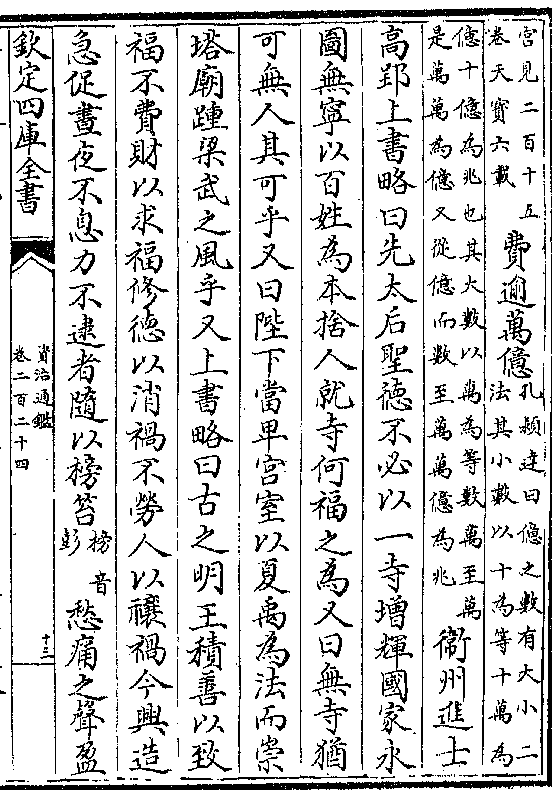 宫見二百十五
卷天寳六載
費逾萬億
孔頴達曰億之數有大小二
法其小數以十為等十萬為
億十億為兆也其大數以萬為等數萬至萬
是萬萬為億又從億而數至萬萬億為兆
衞州進士
高郢上書略曰先太后聖德不必以一寺增輝國家永
圖無寧以百姓為本捨人就寺何福之為又曰無寺猶
可無人其可乎又曰陛下當卑宫室以夏禹為法而崇
塔廟踵梁武之風乎又上書略曰古之明王積善以致
福不費財以求福修德以消禍不勞人以禳禍今興造
急促晝夜不息力不逮者隨以榜笞
榜音
彭
愁痛之聲盈
欽定四庫全書
資治通鑑
卷二百二十四
十三